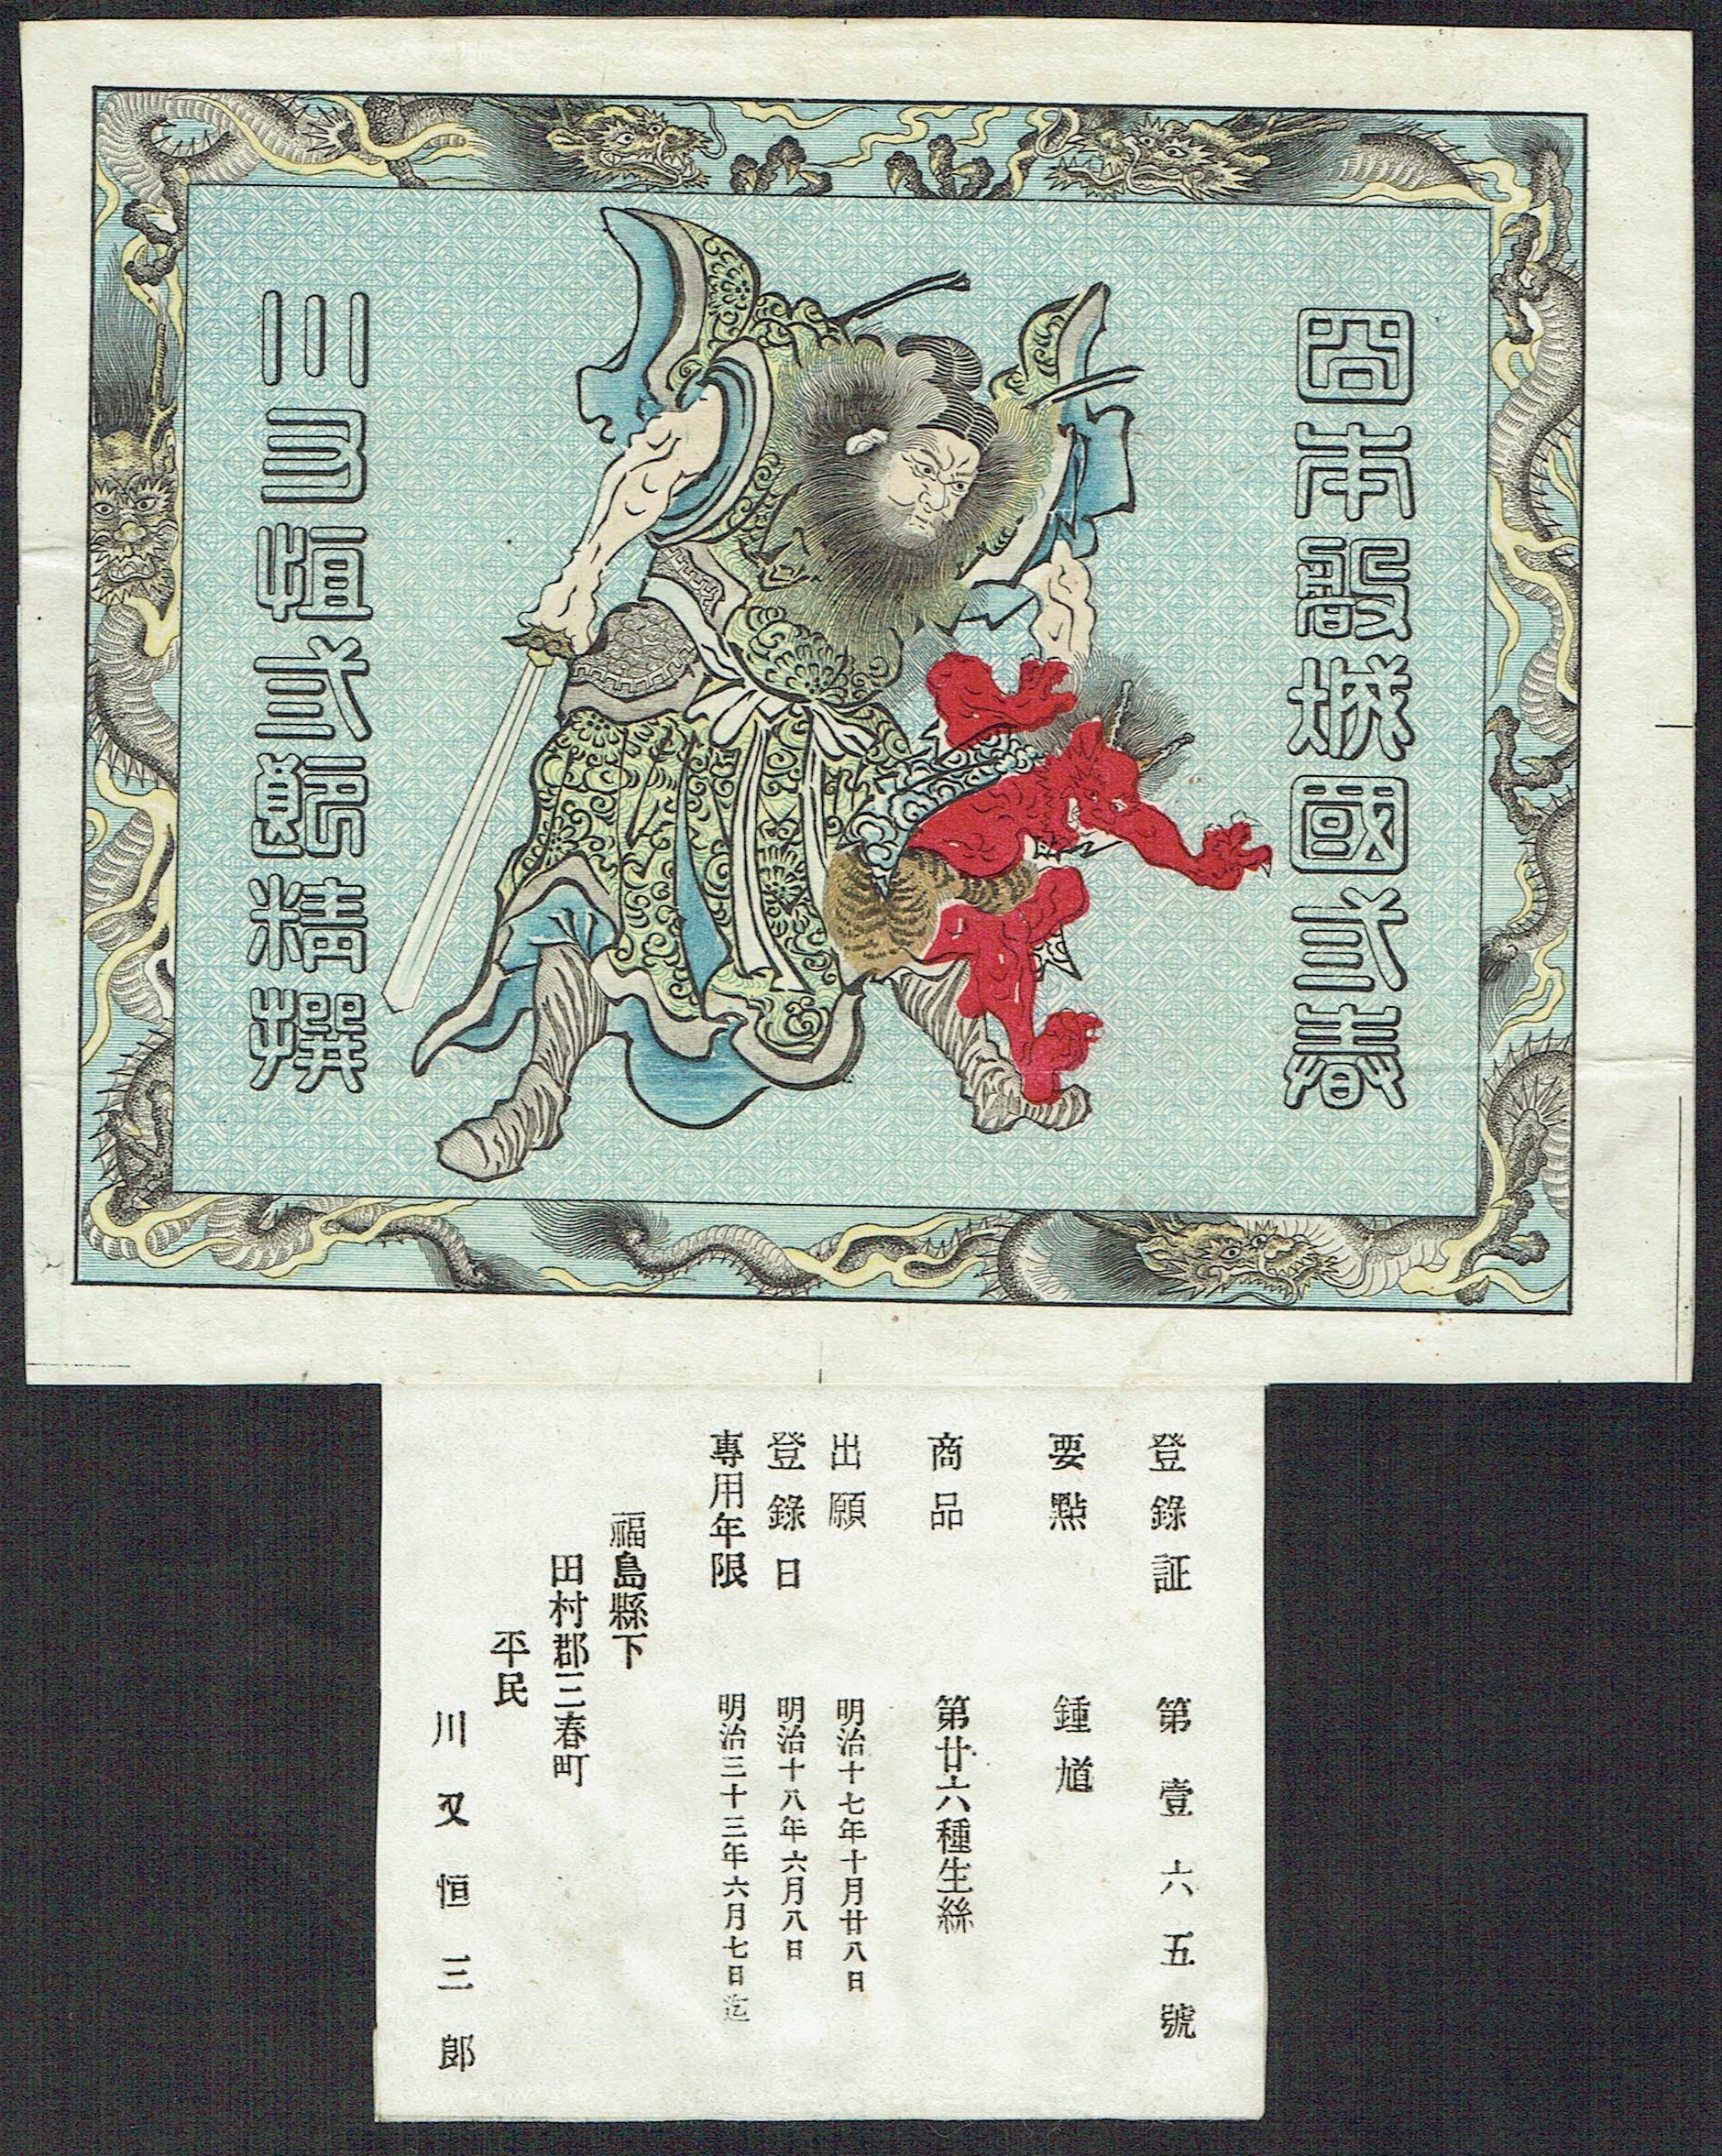 日本磐城國弎春
川又恒弎郎精撰
登錄証 第壹六五號
要㸃 鍾馗
商品 第廿六種生絲
出願 明治十七年十月廿八日
登錄日 明治十八年六月八日
專用年限 明治三十三年六月七日迄
福島縣下
田村郡三春町
平民
川又恒三郎